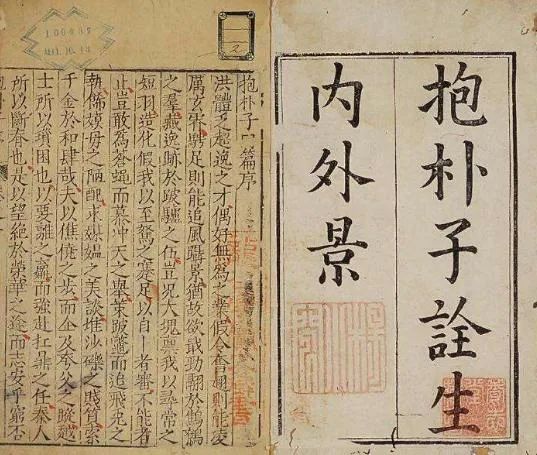 抱朴子詮生
内外景
抱朴子 篇序
洪體乏超逸之才偶好無為之業假令奮翅則能凌
厲玄霄騁足則能追風躡景猶故欲戢勁翮於鷦鷃
之羣藏逸跡於跛驢之伍豈况大塊稟我以尋常之
短羽造化假我以至駑之蹇足以自卜者審不能者
止豈敢為蒼蠅而慕冲天之舉策跛鼈而追飛兔之
軌飾嫫母之陋醜求媒媼之美談堆沙礫之賤質索
千金於和肆哉夫以僬僥之步而企及夸父之蹤越
士所以躓困也以要離之羸而強赴扛鼎之任秦人
所以斷春也是以望絕於榮華之途而志安乎窮否